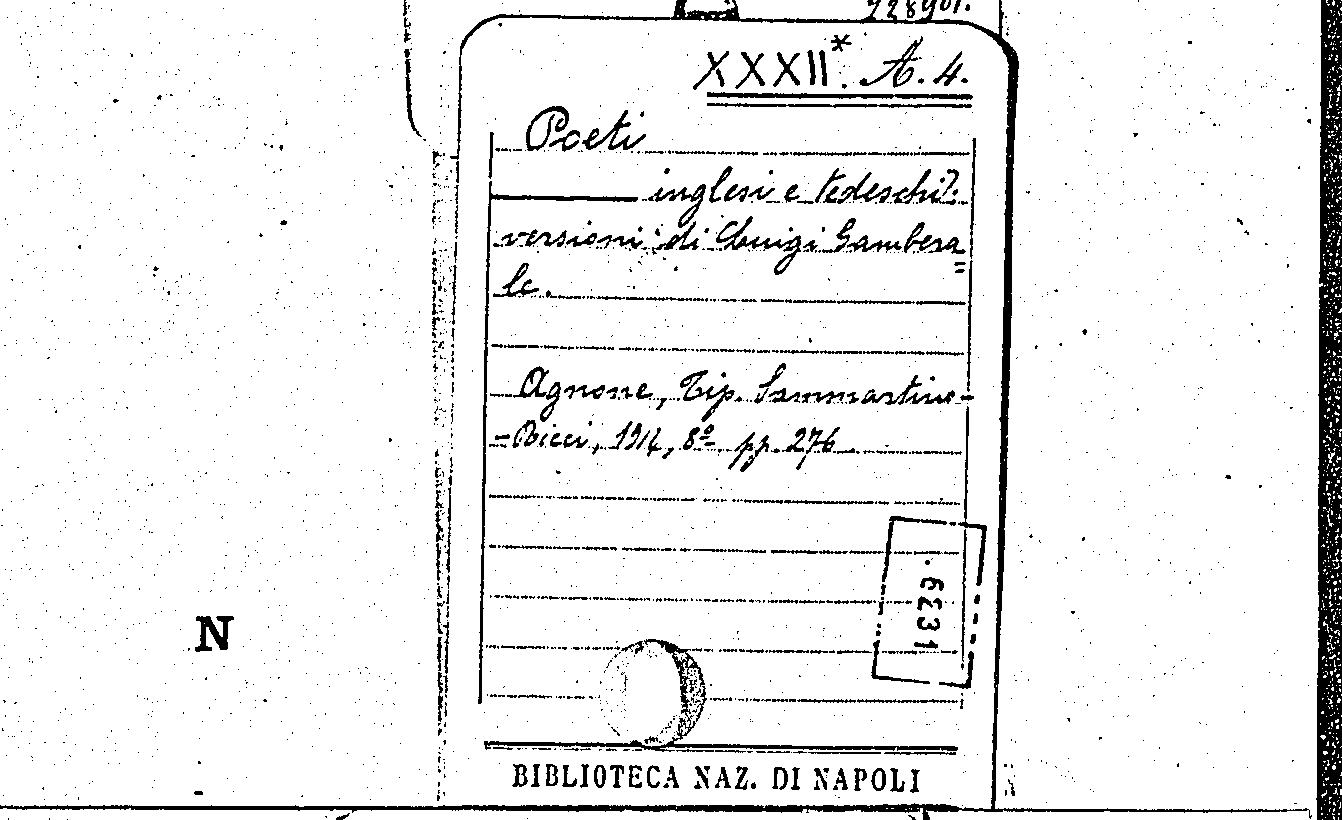 228901.
XXXII*. A. 4.
Poeti
inglesi e tedeschi
versioni di Luigi Gambera=
le.
Agnone, Tip. Sammartino-
-Ricci, 1914, 8º pp. 276
6231
N
BIBLIOTECA NAZ. DI NAPOLI